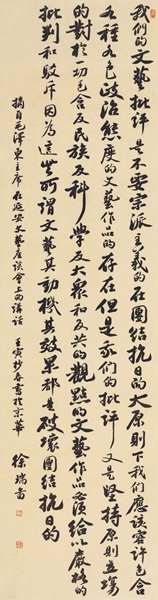 我们的文艺批评是不要宗派主义的在团结抗日的大原则下我们应该容许包含
各种各色政治态度的文艺作品的存在但是我们的批评又是坚持原则立场
的对于一切包含反民族反科学反大众和反共的观点的文艺作品必须给以严格的
批判和驳斥因为这些所谓文艺其动机其效果都是破坏团结抗日的
摘自毛泽东主席在延安文艺座谈会上的讲话 壬寅抄春写于京华 徐瑞